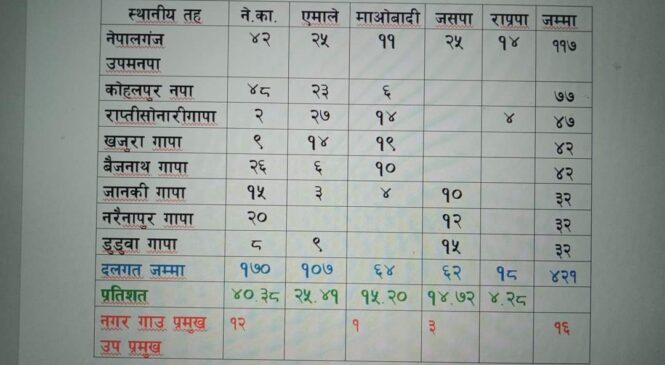 स्थानीय तह ने.का. एमाले माओबादी जसपा राप्रपा जम्मा
नेपालगंज ४२ २५ ११ २५ १४ ११७
उपमनपा
कोहलपुर नपा ४८ २३ ६ ७७
राप्तीसोनारीगापा २ २७ १४ ४ ४७
खजुरा गापा ९ १४ १९ ४२
बैजनाथ गापा २६ ६ १० ४२
जानकी गापा १५ ३ ४ १० ३२
नरैनापुर गापा २० १२ ३२
डुडुवा गापा ८ ९ १५ ३२
दलगत जम्मा १७० १०७ ६४ ६२ १८ ४२१
प्रतिशत ४०.३८ २५.४१ १५.२० १४.७२ ४.२८
नगर गाउ प्रमुख १२ १ ३ १६
उप प्रमुख